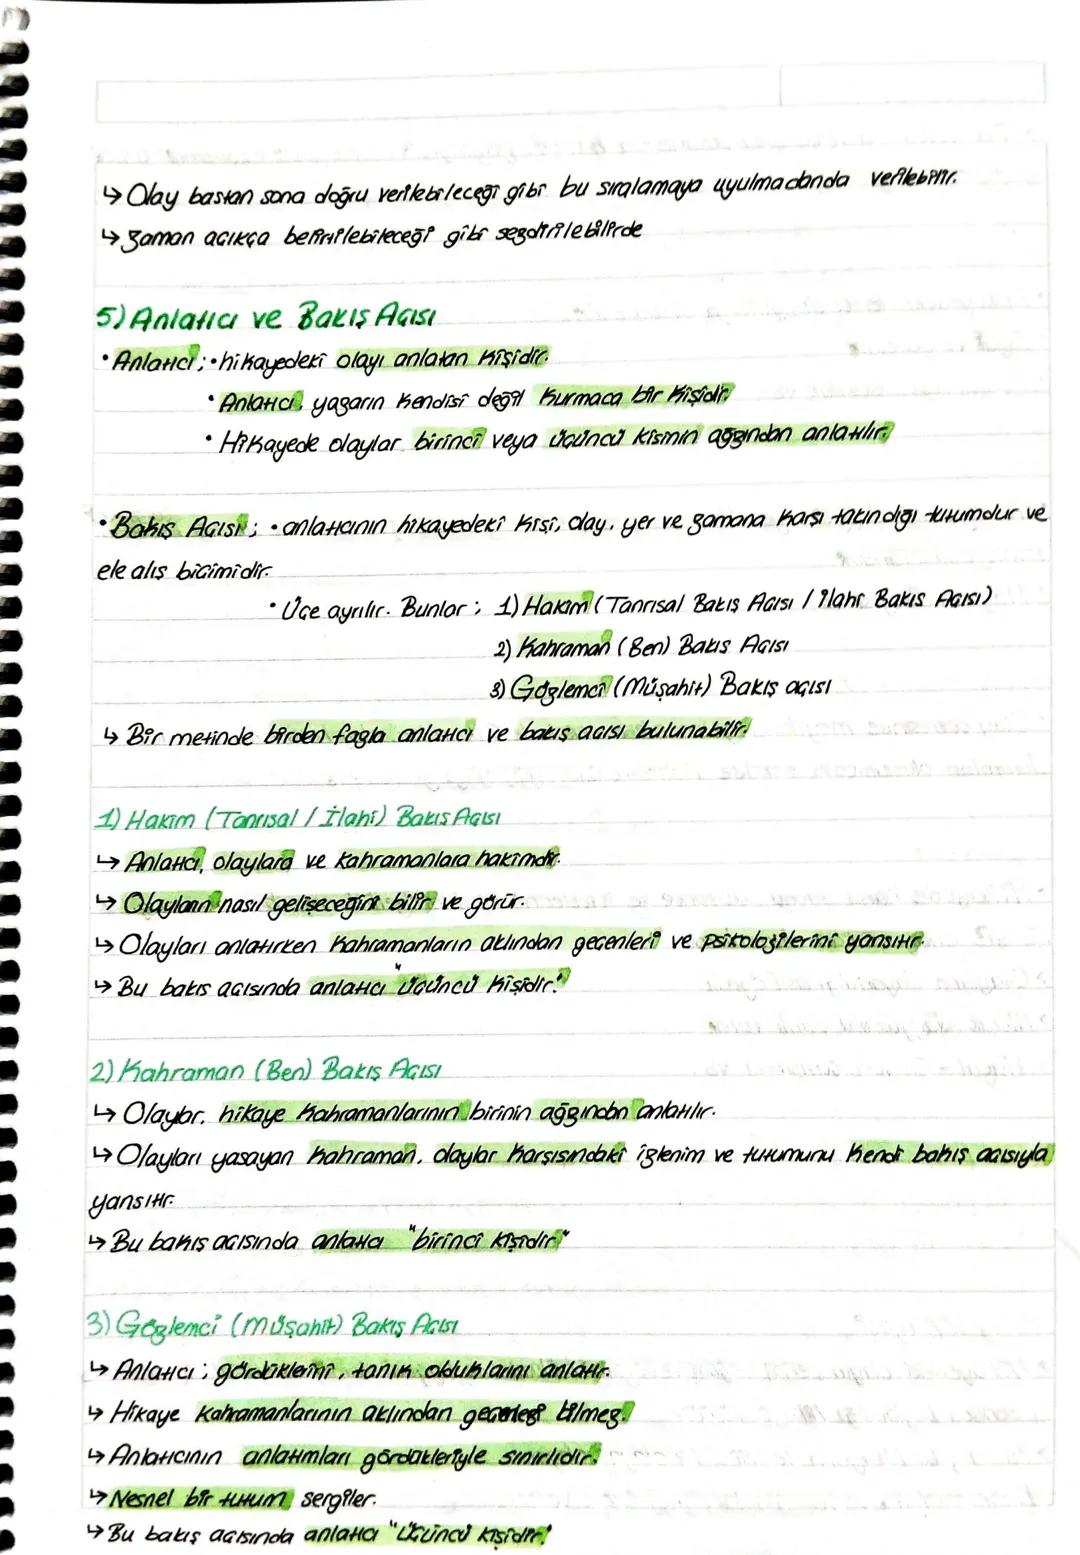 ↳ Olay bastan sona doğru verilebileceği gibi bu sıralamaya uyulmadanda verilebilir.
↳ Zaman açıkça belirtilebileceği gibi sezdirilebilirde
5) Anlatıcı ve Bakış Açısı
• Anlatıcı ; • hikayedeki olayı anlatan kişidir.
• Anlatıcı, yazarın kendisi değil kurmaca bir kişidir.
• Hikayede olaylar birinci veya üçüncü kişinin ağzından anlatılır.
• Bakış Açısı ; • anlatıcının hikayedeki kişi, olay, yer ve zamana karşı takındığı tutumdur ve
ele alış biçimidir.
• Üçe ayrılır. Bunlar ; 1) Hakim (Tanrısal Bakış Açısı / İlahi Bakış Açısı)
2) Kahraman (Ben) Bakış Açısı
3) Gözlemci (Müşahit) Bakış açısı
↳ Bir metinde birden fazla anlatıcı ve bakış açısı bulunabilir.
1) Hakim (Tanrısal / İlahi) Bakış Açısı
↳ Anlatıcı, olaylara ve kahramanlara hakimdir.
↳ Olayların nasıl gelişeceğini bilir ve görür.
↳ Olayları anlatırken kahramanların aklından geçenleri ve psikolojilerini yansıtır.
↳ Bu bakış açısında anlatıcı "üçüncü kişidir."
2) Kahraman (Ben) Bakış Açısı
↳ Olaylar, hikaye kahramanlarının birinin ağzından anlatılır.
↳ Olayları yaşayan kahraman, olaylar karşısındaki izlenim ve tutumunu kendi bakış açısıyla
yansıtır.
↳ Bu bakış açısında anlatıcı "birinci kişidir"
3) Gözlemci (Müşahit) Bakış Açısı
↳ Anlatıcı ; gördüklerini, tanık olduklarını anlatır.
↳ Hikaye kahramanlarının aklından geçenleri bilmez.
↳ Anlatıcının anlatımları gördükleriyle sınırlıdır.
↳ Nesnel bir tutum sergiler.
↳ Bu bakış açısında anlatıcı "üçüncü kişidir."